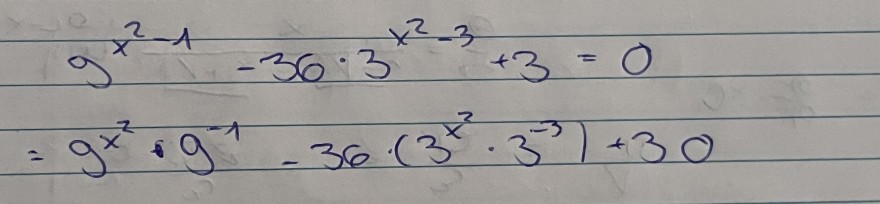 9^{x^2-1} - 36 · 3^{x^2-3} + 3 = 0
= 9^{x^2} · 9^{-1} - 36 · (3^{x^2} · 3^{-3}) + 3 0